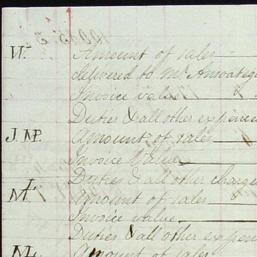 W. Amount of sales
delivered to Mr
Invoice value
Duties & all other expences
J. M. Amount of sales
Invoice Value
Duties & all other charges
M. Amount of sales
Invoice value
Duties & all other
M. Amount of sales